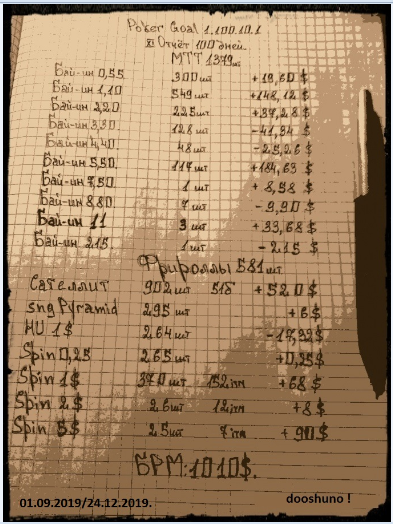 Poker Goal 1.100.10.1
XI Отчёт 100 дней.
МТТ 1379шт
Бай-ин 0,55 300шт +19,60$
Бай-ин 1,10 549шт +148,12$
Бай-ин 2,20 225шт +37,28$
Бай-ин 3,30 128шт -41,34$
Бай-ин 4,40 48шт -25,26$
Бай-ин 5,50 117шт +184,63$
Бай-ин 7,50 1шт +8,58$
Бай-ин 8,80 7шт -9,90$
Бай-ин 11 3шт +33,68$
Бай-ин 215 1шт -215$
Фрироллы 581шт
Сателлит 902шт 516 +520$
sng Pyramid 295шт +6$
HU 1$ 264шт -17,32$
Spin 0,25 265шт +0,25$
Spin 1$ 370шт 152itm +68$
Spin 2$ 26шт 12itm +8$
Spin 5$ 25шт 7itm +90$
БРМ:1010$.
01.09.2019/24.12.2019. dooshuno !